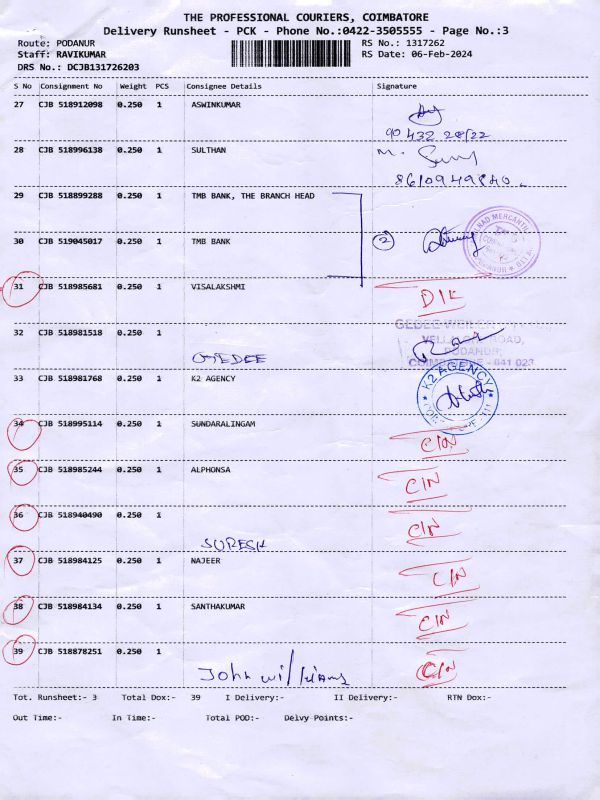 THE PROFESSIONAL COURIERS, COIMBATORE
Delivery Runsheet - PCK - Phone No.:0422-3505555 - Page No.:3
Route: PODANUR RS No.: 1317262
Staff: RAVIKUMAR RS Date: 06-Feb-2024
DRS No.: DCJB131726203
S No Consignment No Weight PCS Consignee Details Signature
27 CJB 518912098 0.250 1 ASWINKUMAR
90 432 28/22
28 CJB 518996138 0.250 1 SULTHAN M.
8610949840
29 CJB 518899288 0.250 1 TMB BANK, THE BRANCH HEAD
30 CJB 519045017 0.250 1 TMB BANK 2
31 CJB 518985681 0.250 1 VISALAKSHMI
D/K
32 CJB 518981518 0.250 1
GEDEE
PODANUR,
COIMBATORE - 641 023
33 CJB 518981768 0.250 1 K2 AGENCY
K2 AGENCY
34 CJB 518995114 0.250 1 SUNDARALINGAM
C/N
35 CJB 518985244 0.250 1 ALPHONSA
C/N
36 CJB 518940490 0.250 1
SURESH
C/N
37 CJB 518984125 0.250 1 NAJEER
C/N
38 CJB 518984134 0.250 1 SANTHAKUMAR
C/N
39 CJB 518878251 0.250 1
John williams
C/N
Tot. Runsheet:- 3 Total Dox:- 39 I Delivery:- II Delivery:- RTN Dox:-
Out Time:- In Time:- Total POD:- Delvy Points:-